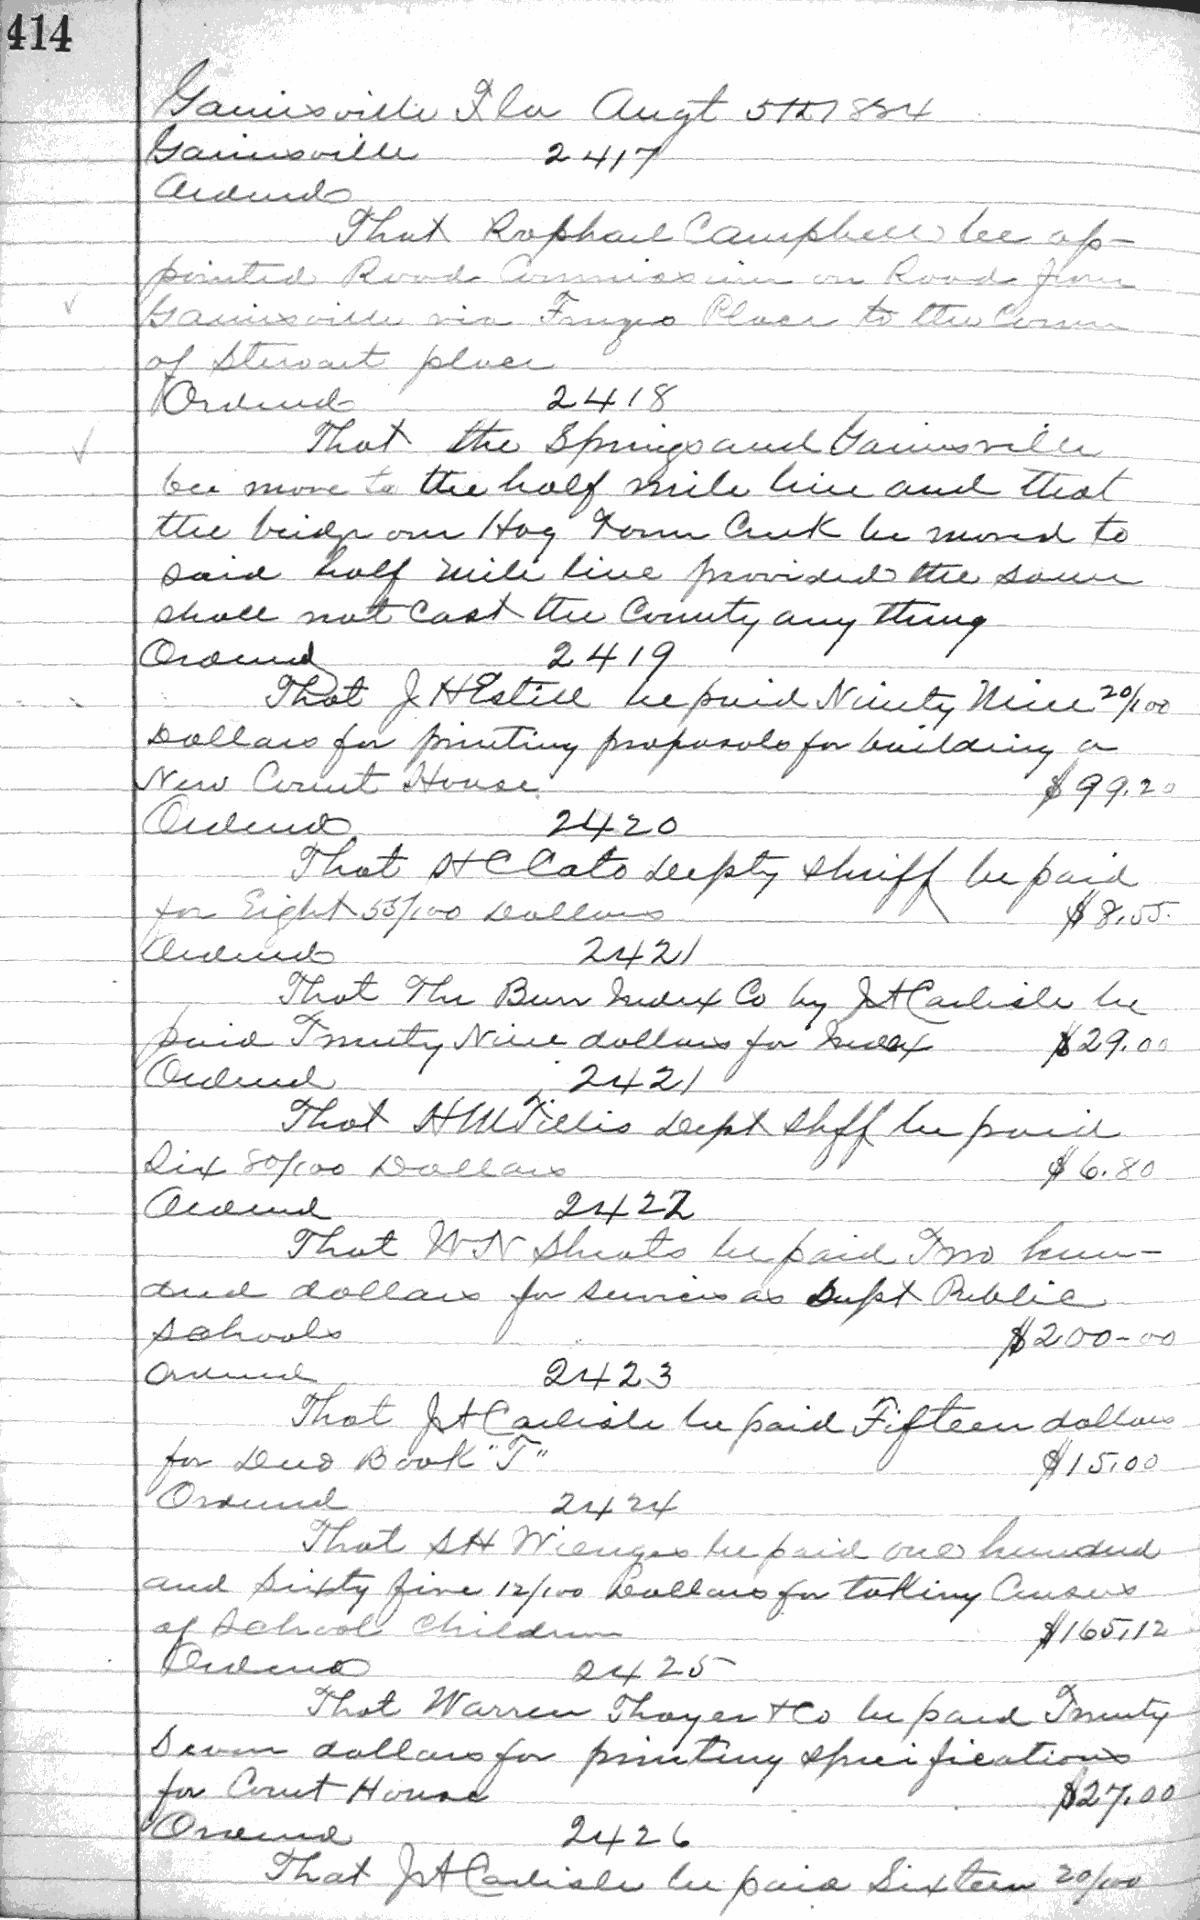 414
Gainesville Fla Augt 5th 1884
Gainesville 2417
Ordered
That Raphael Campbell be ap-
pointed Road Commissioner on Road from
Gainesville via Place to the Corner
of Stewart place
Ordered 2418
That the Springs and Gainesville
be move to the half mile line and that
the bridge over Hog Town Creek be moved to
said half mile line provided the same
shall not cost the County any thing
Ordered 2419
That J H Estill be paid Ninety Nine 20/100
Dollars for printing proposals for building a
New Court House $99.20
Ordered 2420
That H C Cato Depty Shriff be paid
for Eight 55/100 Dollars $8.55
Ordered 2421
That The Burr Index Co by J H Carlisle be
paid Twenty Nine dollars for Index $29.00
Ordered 2421
That H M Tillis Dept Shff be paid
Six 80/100 Dollars $6.80
Ordered 2422
That W N Sheats be paid Two hun-
dred dollars for services as Supt Public
Schools $200-00
Ordered 2423
That J H Carlisle be paid Fifteen dollars
for Deed Book "T" $15.00
Ordered 2424
That S H Wienges be paid one hundred
and Sixty five 12/100 Dollars for taking Census
of School Children $165.12
Ordered 2425
That Warren Thayer & Co be paid Twenty
Seven dollars for printing specifications
for Court House $27.00
Ordered 2426
That J H Carlisle be paid Sixteen 20/100